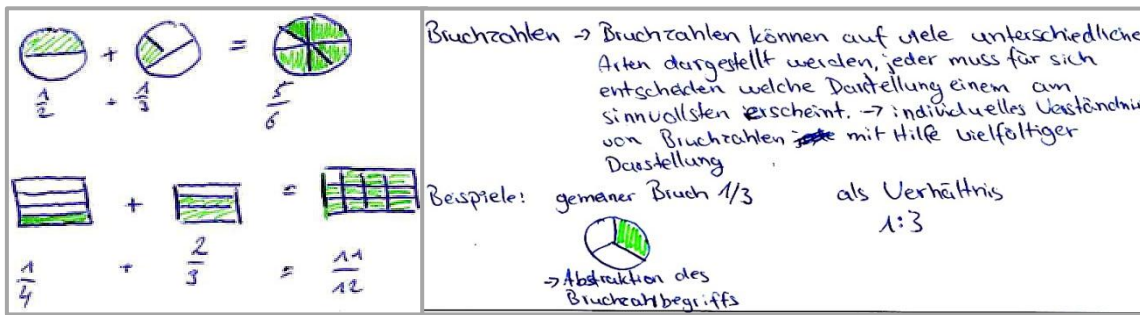 + =
1/2 + 1/3 5/6
+ =
1/4 + 2/3 = 11/12
Bruchzahlen → Bruchzahlen können auf viele unterschiedliche
Arten dargestellt werden, jeder muss für sich
entscheiden welche Darstellung einem am
sinnvollsten erscheint. → individuelles Verständnis
von Bruchzahlen mit Hilfe vielfältiger
Darstellung
Beispiele: gemeiner Bruch 1/3 als Verhältnis
1:3
→ Abstraktion des
Bruchzahlbegriffs